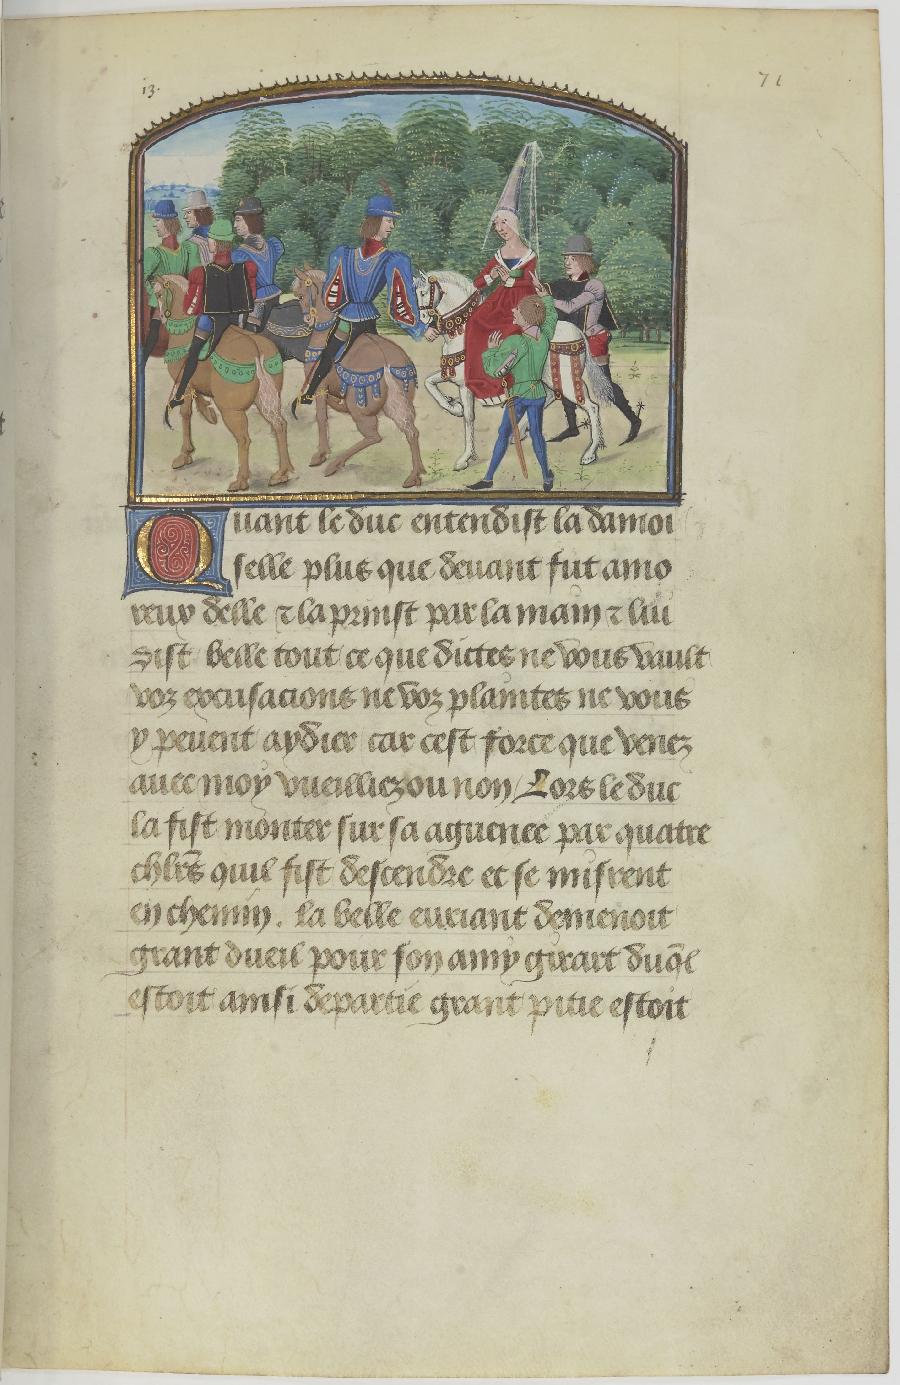 13.
71
Quant le duc entendist la damoi
selle plus que devant fut amo
reux delle ⁊ la prinst par la main ⁊ luy
dist belle tout ce que dictes ne vous vault
voz excusacions ne voz plaintes ne vous
y pevent aydier car cest force que venez
avec moy vueilliez ou non / Lors le duc
la fist monter sur sa aguenee par quatre
chlr̄s quil fist descendre et se misrent
en chemin . la belle euriant demenoit
grant dueil pour son amy girart duq̄l
estoit ainsi departie grant pitie estoit